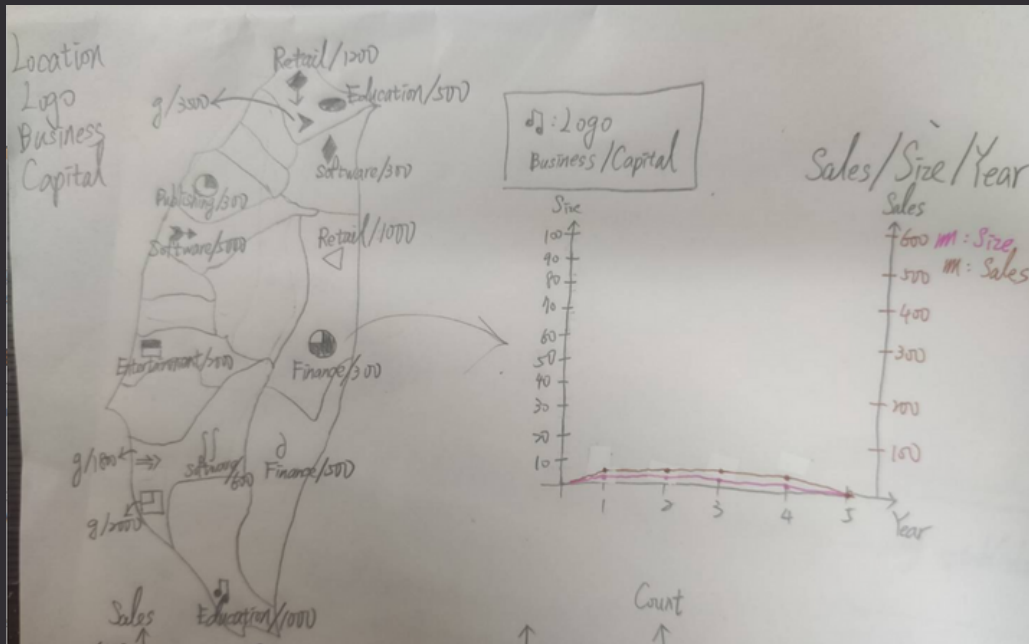 Location
Logo
Business
Capital
Retail/1200
Education/500
g/3500
Software/300
Publishing/300
Software/5000
Retail/1000
Entertainment/2000
Finance/300
g/1800
Software/600
Finance/500
g/2000
Education/1000
♫: Logo
Business/Capital
Sales/Size/Year
Size
100
90
80
70
60
50
40
30
20
10
1 2 3 4 5
Year
Sales
600
500
400
300
200
100
m: Size
m: Sales
Sales
Count